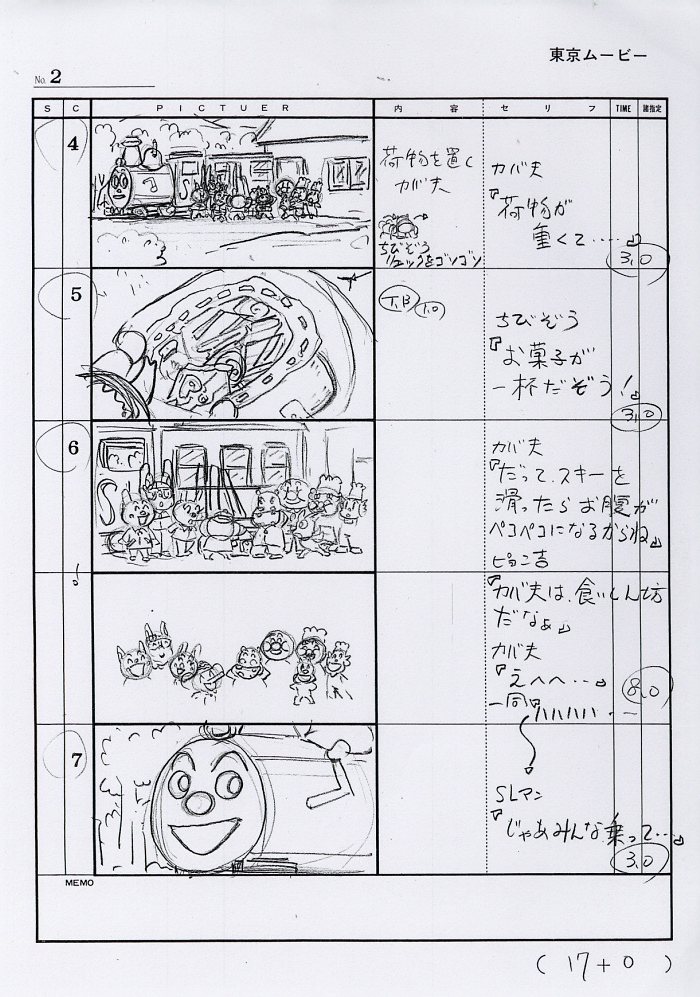 東京ムービー
No. 2
S C PICTUER 内容 セリフ TIME 諸指定
4
荷物を置く
カバ夫
ちびぞう
リュックをゴソゴソ
カバ夫
『荷物が
重くて……』
3,0
5
T.B
ちびぞう
『お菓子が
一杯だぞう!』
3,0
6
カバ夫
『だって、スキーを
滑ったらお腹が
ペコペコになるからね』
ピョン吉
『カバ夫は、食いしん坊
だなぁ』
カバ夫
『えへへ・・・』
一同『ハハハハハ
8,0
7
SLマン
『じゃあみんな乗って…』
3,0
MEMO
(17+0)